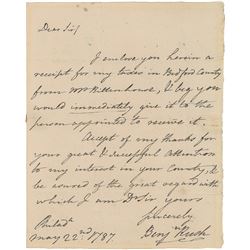 Dear Sir/
I enclose you herein a
receipt for my taxes in Bedford County
from Mr Rittenhouse, & beg you
would immediately give it to the
person appointed to receive it.
Accept of my thanks for
your great & successful Attention
to my interest in your County, &
be assured of the great regard with
which I am Dr Sir yours
Sincerely
Benjn Rush
Philada
May 22nd 1787